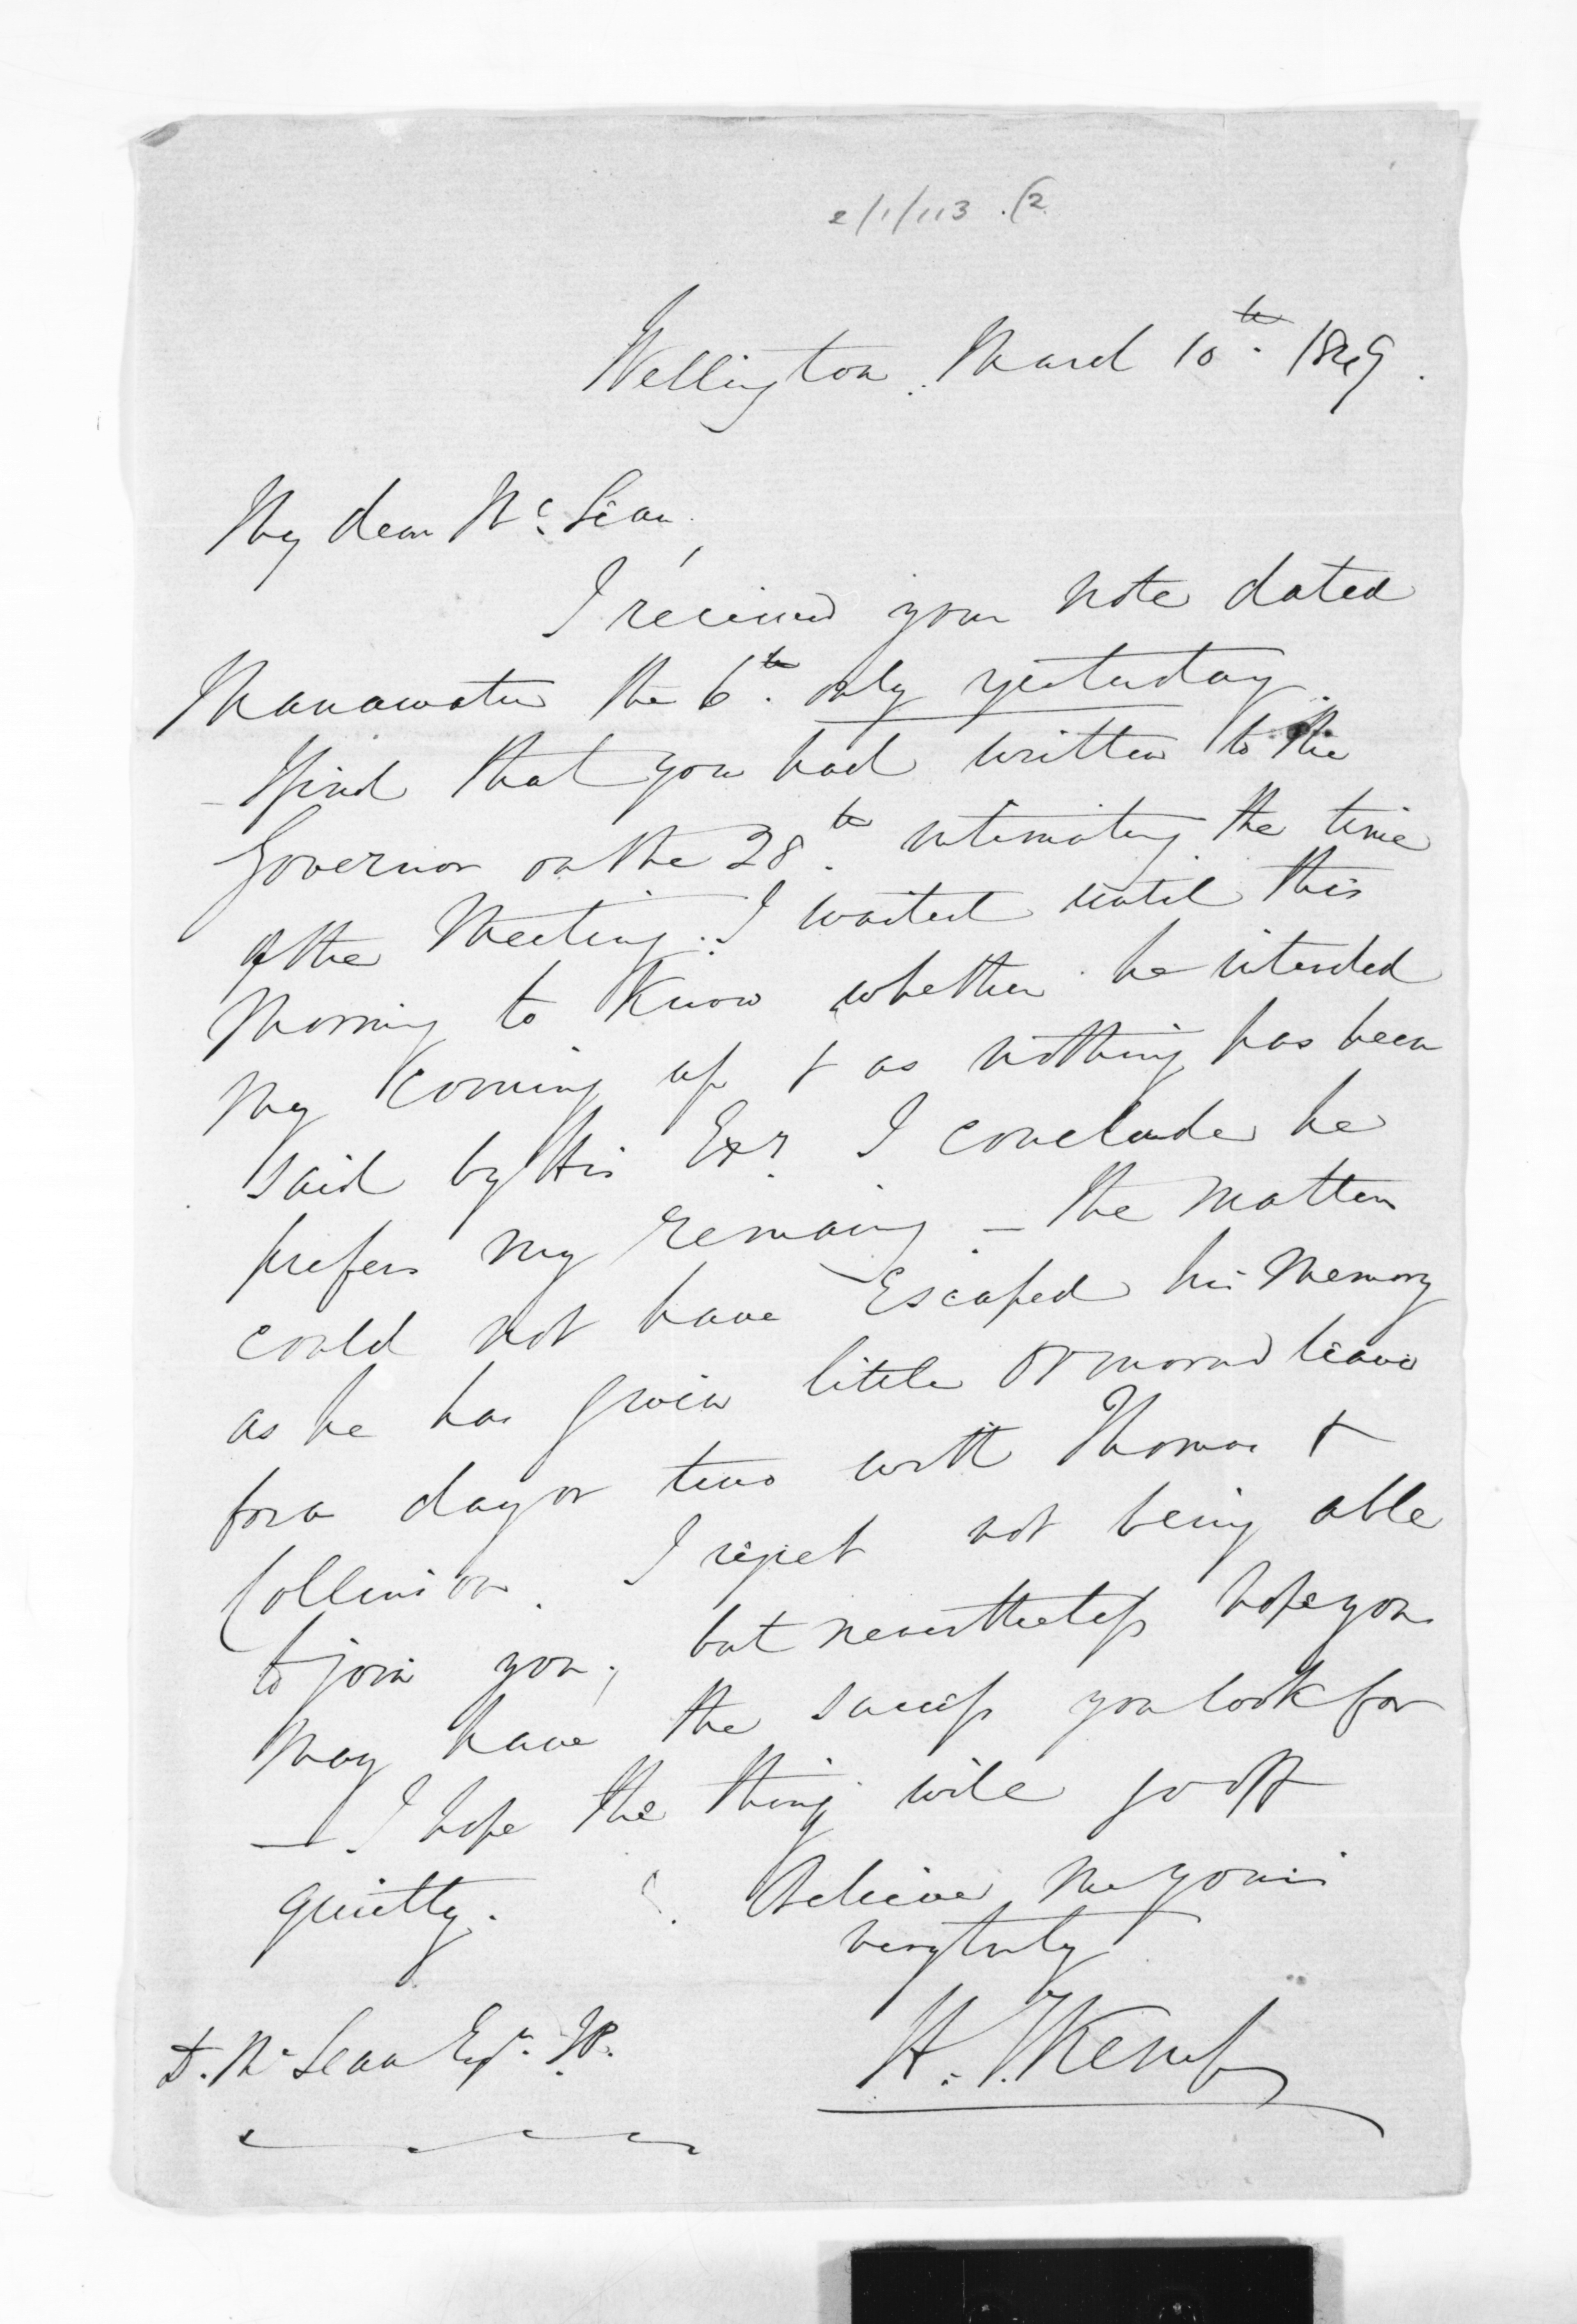 2/1/113 . (2
Wellington. March 10th. 1849.
My dear McLean,
I received your note dated
Manawatu the 6th. only yesterday.
- I find that you had written to the
Governor on the 28th. intimating the time
of the Meeting. I waited until this
Morning to Know whether he intended
My coming up & as nothing has been
said by His Exy. I conclude he
prefers my remaing. - The Matter
could not have Escaped his Memory
as he has given little Ormond leave
for a day or two with Thomas &
Collinson. I regret not being able
to join you; but nevertheless hope you
May have the success you look for
- I hope the thing will go off
quietly. Believe Me yours
very truly
H. T. Kemp
D. McLean Esqr. JP.